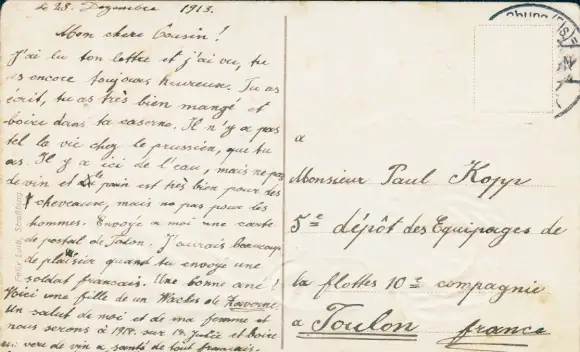 le 28. Dezembre 1913.
Mon chere Cousin!
J'ai lu ton lettre et j'ai vu, tu
es encore toujours heureux. Tu as
écrit, tu as très bien mangé et
boire dans ta caserne. Il n'y a pas
tel la vie chez le prussien, que tu
as. Il y a ici de l'eau, mais ne pas
de vin et le pain est très bien pour des
chevaune, mais ne pas pour des
hommes. Envoyé a moi une carte
de postal de Tolon. J'aurais beaucoup
de plaisir quand tu envoyé une
soldat francais. Une bonne ané!
Voici une fille de un Wackes de Zaverne.
Un salut de moi et de ma femme et
nous serons à 1914 sur 14 Julie et boire
un vere de vin a santé de tout français.
Felix Luib, Strassburg
a
Monsieur Paul Kopp
5e dépôt des Equipages de
la flottes 10e compagnie
a Toulon france